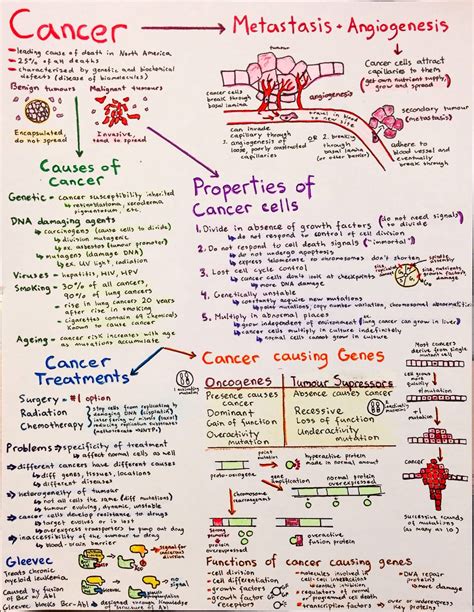 Cancer
→ Metastasis + Angiogenesis
- leading cause of death in North America
- 25% of all deaths
- characterized by genetic and biochemical
defects (disease of biomolecules)
Benign tumours
Malignant tumours
Encapsulated,
do not spread
Invasive,
tend to spread
tumour
cancer cells
break through
basal lamina
angiogenesis
Cancer cells attract
capillaries to them
(get own nutrient supply,
grow and spread
travel in blood
to new site
secondary tumour
(metastasis)
can invade
capillary through
angiogenesis of
loose, poorly constructed
capillaries
OR
2. breaking
through
basal lamina
(or other barrier)
adhere to
blood vessel and
eventually
break through
Causes of
Cancer
Genetic - cancer susceptibility inherited
↳ retinoblastoma, xeroderma
pigmentortum, etc.
DNA damaging agents
↳ carcinogens (cause cells to divide)
↳ division mutagenic
↳ ex. asbestos (tumour promoter)
↳ mutagens (damage DNA)
↳ ex. UV light, radiation
Viruses - hepatitis, HIV, HPV
Smoking - 30% of all cancers
90% of lung cancers
- rise in lung cancers 20 years
after rise in smoking
- cigarettes contain 69 chemicals
known to cause cancer
Ageing - cancer risk increases with age
as mutations accumulate
Properties of
Cancer cells
1. Divide in absence of growth factors (do not need signals to divide)
↳ do not respond to control of cell division
2. Do not respond to cell death signals ("immortal")
↳ do not undergo apoptosis
↳ express telomerase so chromosomes don't shorten
3. Lost cell cycle control
↳ cancer cells don't look at checkpoints
↳ more DNA damage
4. Genetically unstable
↳ constantly acquire new mutations
↳ point mutations, copy number variation, chromosomal abnormalities
5. Multiply in abnormal places
↳ grow independent of environment (ex. lung cancer can grow in liver)
↳ cancer cells multiply in culture indefinitely
↳ normal cells cannot grow in culture
Cancer
Treatments
Surgery - #1 option
Radiation
Chemotherapy
Problems → specificity of treatment
↳ affect normal cells as well
→ different cancers have different causes
↳ diff genes, tissues, locations
↳ different diseases
→ heterogeneity of tumour
↳ not all cells the same (diff mutations)
↳ tumour evolving, dynamic, unstable
→ cancer cells develop resistance to drugs
↳ target evolves or is lost
↳ overexpress transporters to pump out drug
→ inaccessibility of the tumour to drug
↳ blood-brain barrier
Gleevec
Treats chronic
myeloid leukemia
Caused by fusion
of Bcr and Abl
Gleevec blocks Bcr-Abl
designed through knowledge
of structure of Abl
Cancer causing Genes
Oncogenes
Tumour Supressors
Presence causes
cancer
Dominant
Gain of function
Overactivity
mutation
Absence causes cancer
Recessive
Loss of function
Underactivity
mutation
proto-oncogene
point
mutation
hyperactive protein
made in normal amounts
amplification
normal protein
overexpressed
chromosome
rearrangement
normal
protein
overexpressed
overactive
fusion protein
Most cancers
derive from single
mutant cell
mutation
+1
mutation
Successive rounds
of mutations
(as many as 10)
Functions of cancer causing genes
- cell division
- cell differentiation
- growth factors
- contact inhibition
- molecules involved in
cell-cell interactions
- transcription factors
- DNA repair
proteins